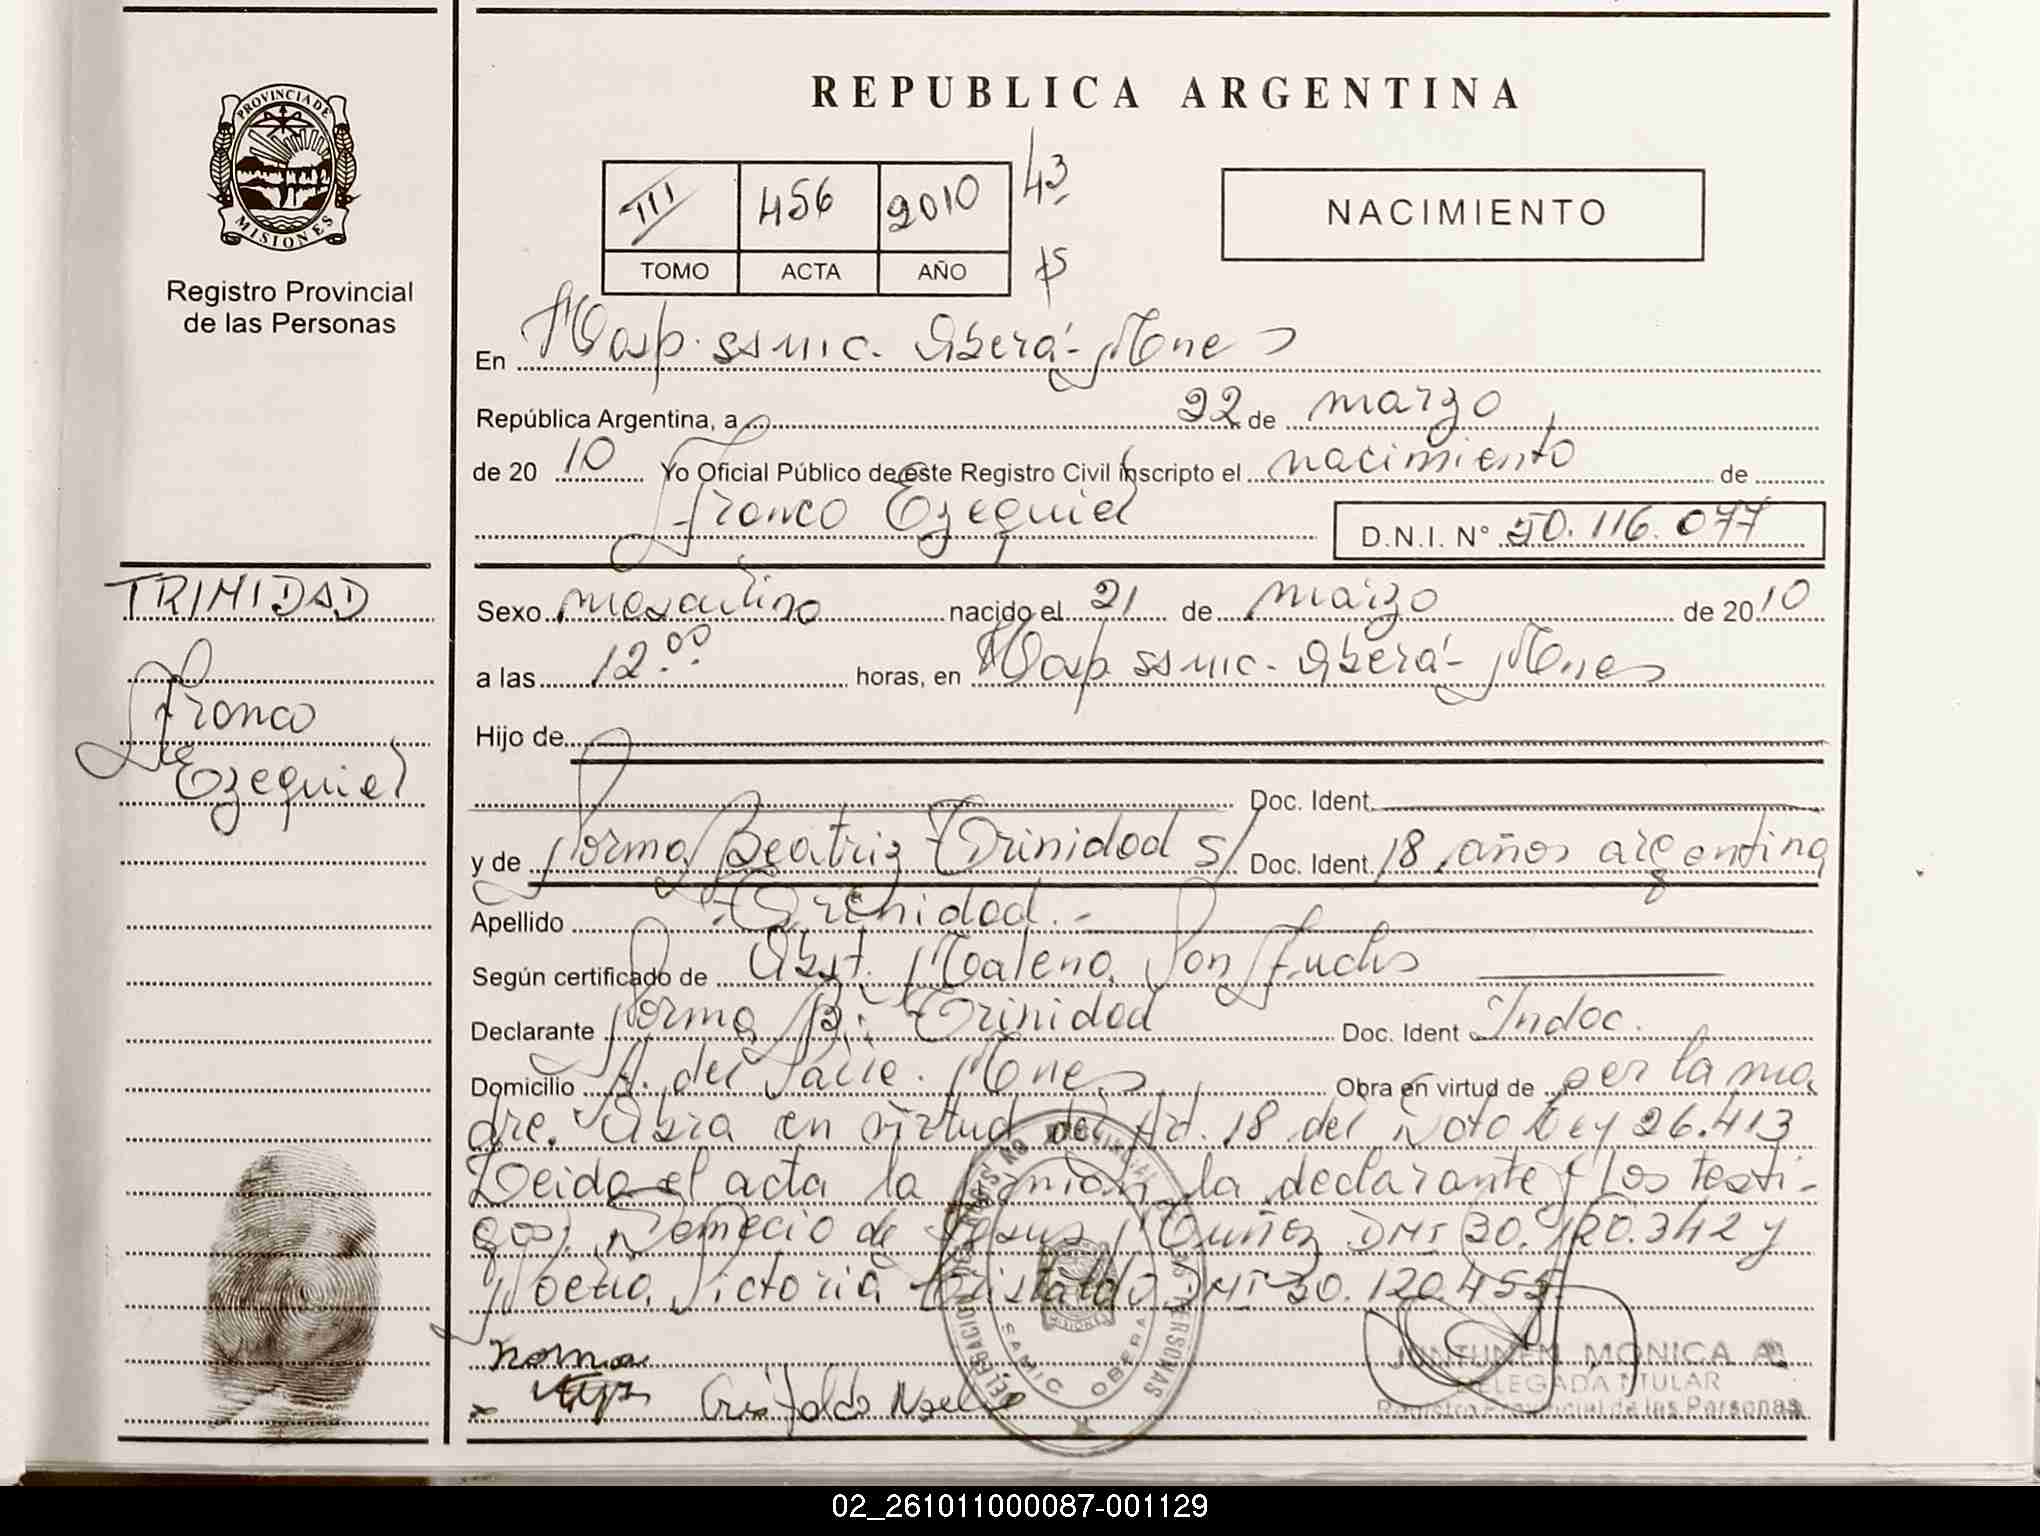 REPUBLICA ARGENTINA
PROVINCIA DE
MISIONES
Registro Provincial
de las Personas
III 456 2010 43
TOMO ACTA AÑO
NACIMIENTO
En Hosp. SSMIC. Oberá - Mnes
República Argentina, a 22 de marzo
de 20 10 Yo Oficial Público de este Registro Civil inscripto el nacimiento de
Franco Ezequiel D.N.I. N° 50.116.077
TRINIDAD
Franco
Ezequiel
Sexo masculino nacido el 21 de marzo de 20 10
a las 12.00 horas, en Hosp. SSMIC - Oberá - Mnes
Hijo de
Doc. Ident.
y de Norma Beatriz Trinidad s/ Doc. Ident. 18 años argentina
Apellido Trinidad.-
Según certificado de Obst. Malena Von Fuchs
Declarante Norma B. Trinidad Doc. Ident Indoc.
Domicilio A. del Valle. Mnes Obra en virtud de ser la ma
dre. Obra en virtud del Art. 18 del Ley 26.413
Leida el acta la firman la declarante y los testi-
gos: de Jesus DNI 30.120.342 y
Noelia Victoria Cristaldo DNI 30.120.455.
norma
Cristaldo Noelia
SAMIC OBERA
MISIONES
JUNTUNEN MONICA A.
DELEGADA TITULAR
Registro Provincial de las Personas
02_261011000087-001129